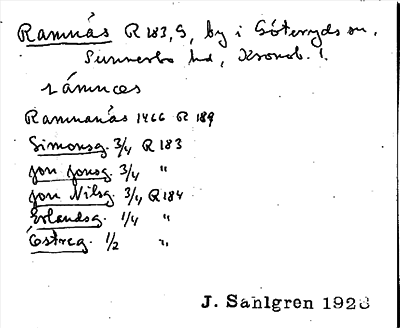 Ramnås R 183, S, by i Göteryds sn,
Sunnerbo hd, Kronob. l.
rámnces
Ramnanäs 1466 R 189
Simonsg. 3/4 R 183
Jon Jonsg. 3/4 "
Jon Nilsg. 3/4 R 184
Erlandsg. 1/4 "
Östreg. 1/2 "
J. Sahlgren 1928